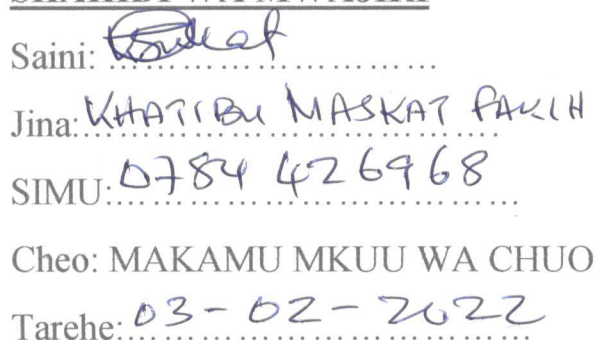 SHAHIDI WA MWAJIRI
Saini:
Jina: KHATIBU MASKAT FAKIH
SIMU: 0784 426968
Cheo: MAKAMU MKUU WA CHUO
Tarehe: 03-02-2022